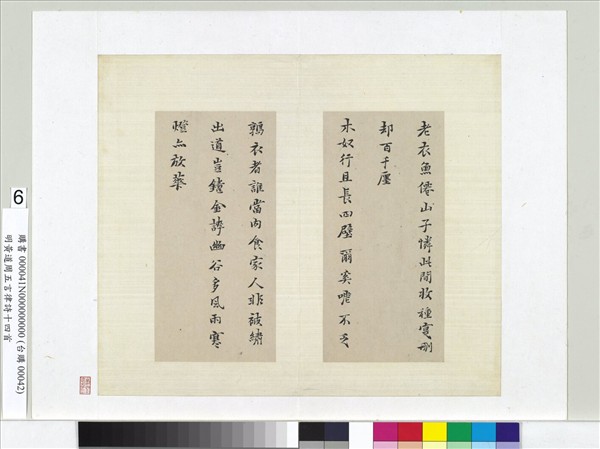 老衣魚倦山子憐此間放種寬刪
却百千廛
木奴行且長四壁爾奚嘑不乏
鶉衣者誰當肉食家人非被繡
出道豈鐘金謗幽谷多風雨寒
燈亦放華
6
購書 000041N000000000 (台購 00042)
明黃道周五言律詩十四首